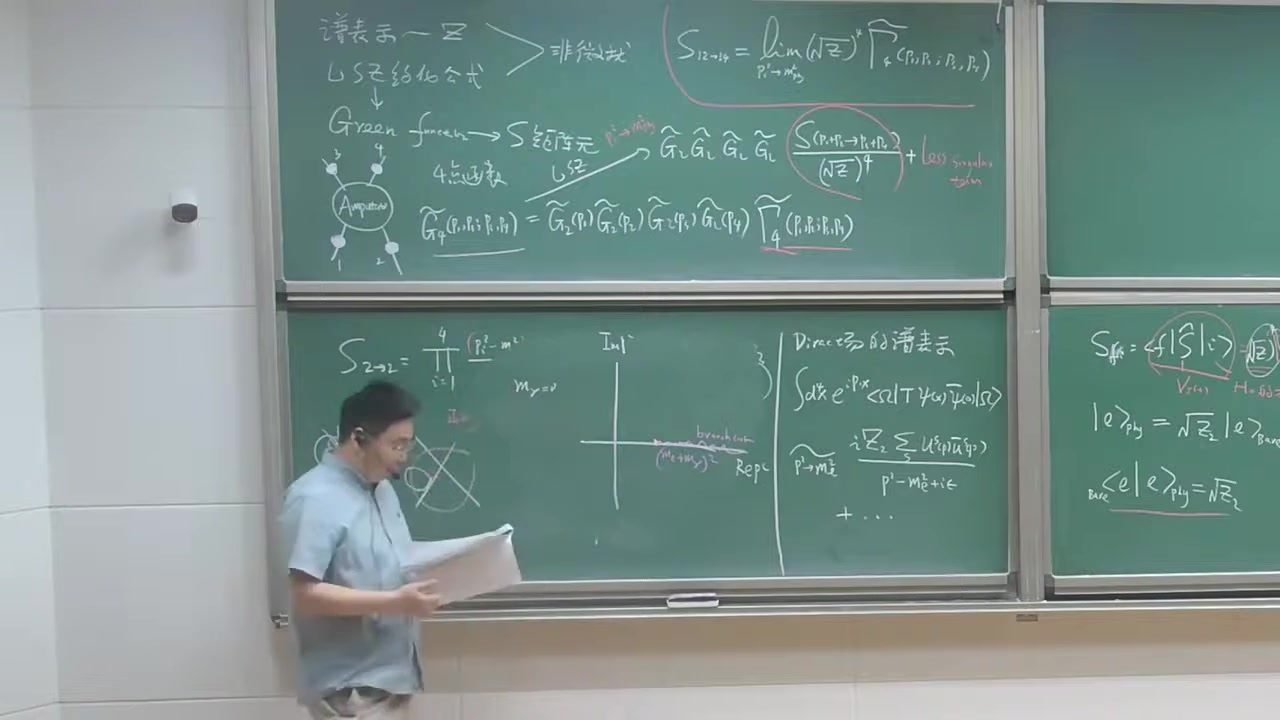 谱表示 — Z
LSZ约化公式
非微扰
↓
Green function → S矩阵元
4点函数
LSZ
3 4
Amputated
1 2
S_{12→34} = lim_{p_i²→m²_{phy}} (√Z)⁴ \widetilde{Γ}_4 (p_1,p_2;p_3,p_4)
p_i²→m²_{phy}
\widetilde{G}_2 \widetilde{G}_2 \widetilde{G}_2 \widetilde{G}_2 S(p_1+p_2→p_3+p_4)/(√Z)⁴ + Less singular term
\widetilde{G}_4(p_1,p_2;p_3,p_4) = \widetilde{G}_2(p_1) \widetilde{G}_2(p_2) \widetilde{G}_2(p_3) \widetilde{G}_2(p_4) \widetilde{Γ}_4 (p_1,p_2;p_3,p_4)
S_{2→2} = ∏_{i=1}^{4} (p_i²-m²
m_γ=0
Im p²
branch cut
(m_e+m_γ)²
Re p²
Dirac场的谱表示
∫d⁴x e^{ip·x} <Ω|Tψ(x)ψ̄(0)|Ω>
\widetilde{p²→m_e²} iZ_2 Σ_s u^s(p)ū^s(p) / p²-m_e²+iε
+ ...
= <f|Ŝ|i> = (√Z)
|e>_{phy} = √Z_2 |e>_{Bare}
_{Bare}<e|e>_{phy} = √Z_2